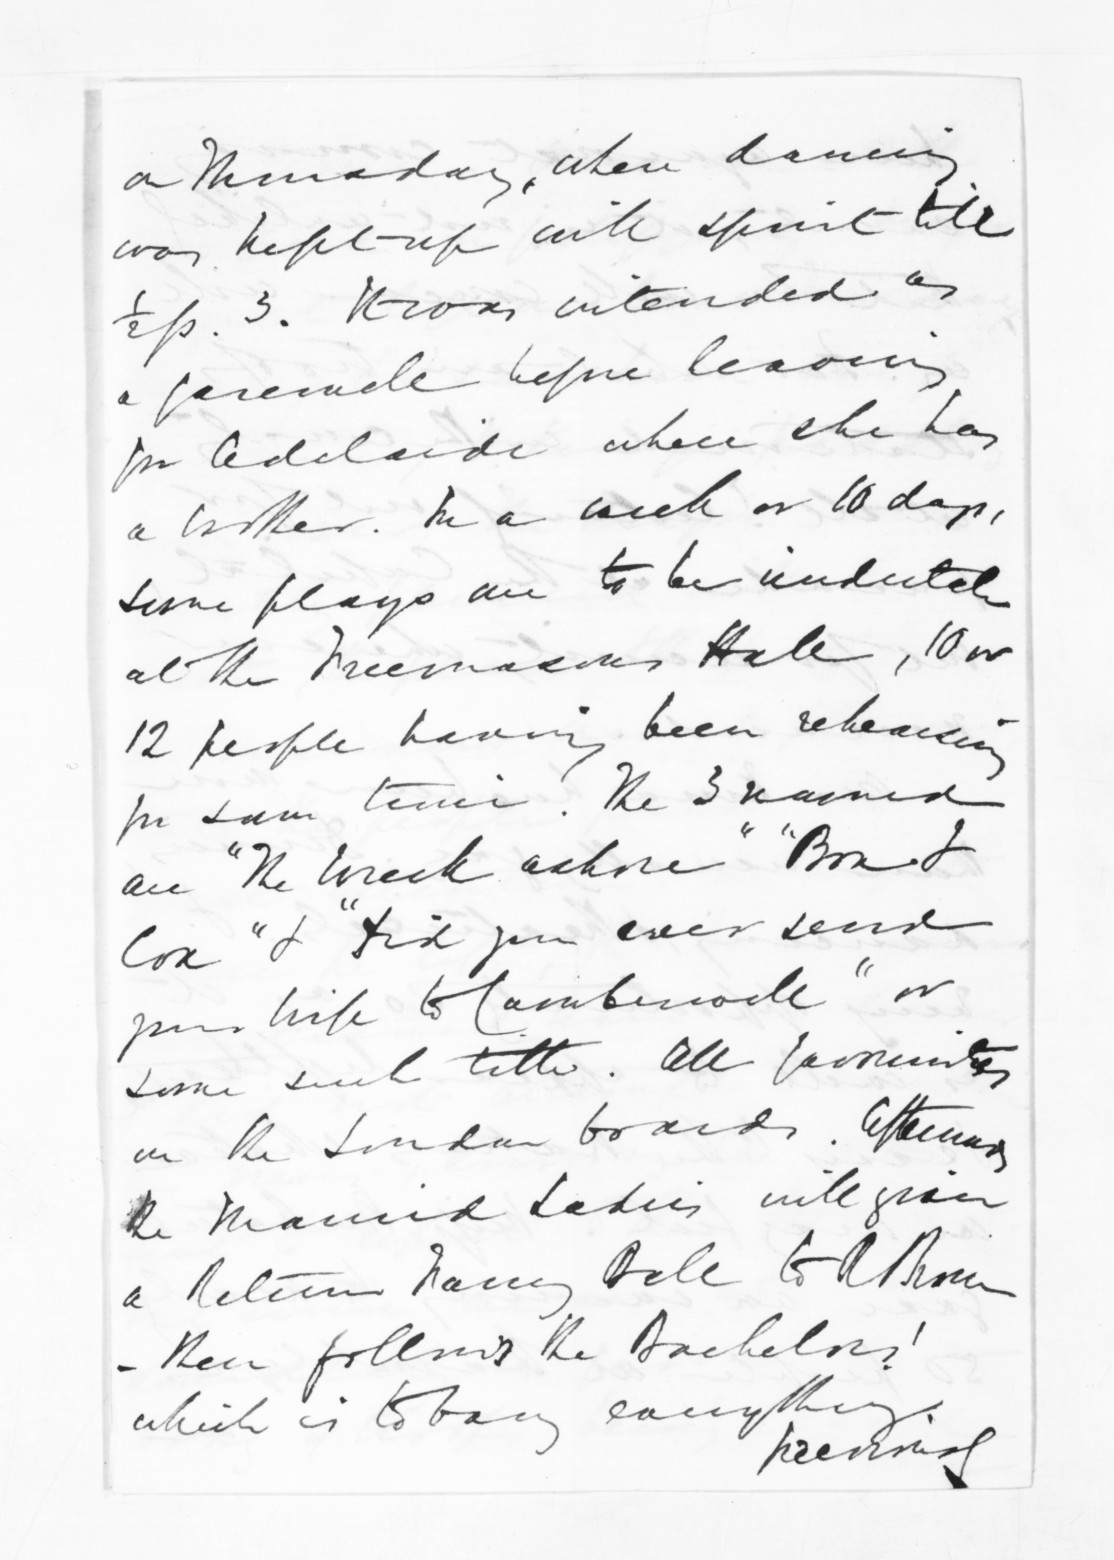 on Thursday, when dancing
was kept up with spirit till
½ p. 3. It was intended as
a farewell before leaving
for Adelaide where she has
a brother. In a week or 10 days,
some plays are to be undertak
at the Freemasons Hall, 10 or
12 people having been rehearsing
for some time. The 3 named
are "The Wreck ashore" "Box &
Cox" & "Did you ever send
your wife to Camberwell" or
some such title. All favourites
on the London boards. Afterwards
the Married Ladies will give
a Return Fancy Ball to R Brown
- then follows the Bachelors'
which is to bang everything
previous